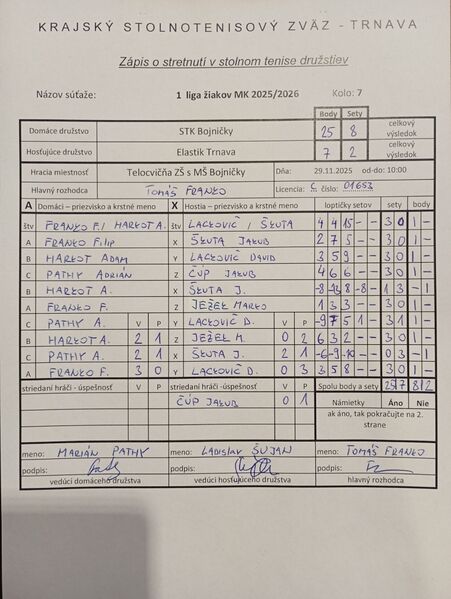 KRAJSKÝ STOLNOTENISOVÝ ZVÄZ - TRNAVA
Zápis o stretnutí v stolnom tenise družstiev
Názov súťaže: 1 liga žiakov MK 2025/2026 Kolo: 7
Body Sety
Domáce družstvo STK Bojničky 25 8 celkový výsledok
Hosťujúce družstvo Elastik Trnava 7 2 celkový výsledok
Hracia miestnosť Telocvičňa ZŠ s MŠ Bojničky Dňa: 29.11.2025 od-do: 10:00
Hlavný rozhodca Tomáš FRANKO Licencia: C číslo: 01653
A Domáci – priezvisko a krstné meno X Hostia – priezvisko a krstné meno loptičky setov sety body
štv FRANKO F./ HARKOT A. štv LACKOVIČ / ŠKUTA 4 4 15 - - 3 0 1 -
A FRANKO Filip X ŠKUTA JAKUB 2 7 5 - - 3 0 1 -
B HARKOT ADAM Y LACKOVIČ DAVID 3 5 9 - - 3 0 1 -
C PATHY ADRIÁN Z ČÚP JAKUB 4 6 6 - - 3 0 1 -
B HARKOT A. X ŠKUTA J. -8 -13 8 -8 - 1 3 - 1
A FRANKO F. Z JEŽEL MARKO 1 3 3 - - 3 0 1 -
C PATHY A. V P Y LACKOVIČ D. V P -9 7 5 1 - 3 1 1 -
B HARKOT A. 2 1 Z JEŽEL M. 0 2 6 3 2 - - 3 0 1 -
C PATHY A. 2 1 X ŠKUTA J. 2 1 -6 -9 -10 - - 0 3 - 1
A FRANKO F. 3 0 Y LACKOVIČ D. 0 3 3 5 8 - - 3 0 1 -
striedaní hráči - úspešnosť striedaní hráči - úspešnosť Spolu body a sety 25 7 8 2
ČÚP JAKUB 0 1 Námietky Áno Nie
ak áno, tak pokračujte na 2. strane
meno: MARIÁN PATHY meno: LADISLAV ŠUJAN meno: TOMÁŠ FRANKO
podpis: podpis: podpis:
vedúci domáceho družstva vedúci hosťujúceho družstva hlavný rozhodca